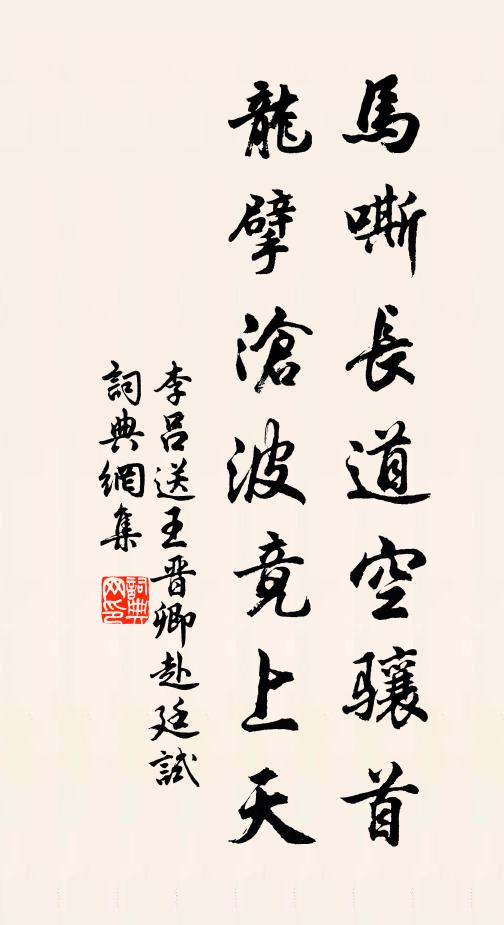 馬嘶長道空驤首
龍擘滄波竟上天
李呂送王晉卿赴廷試
詞典網集
詞典网印